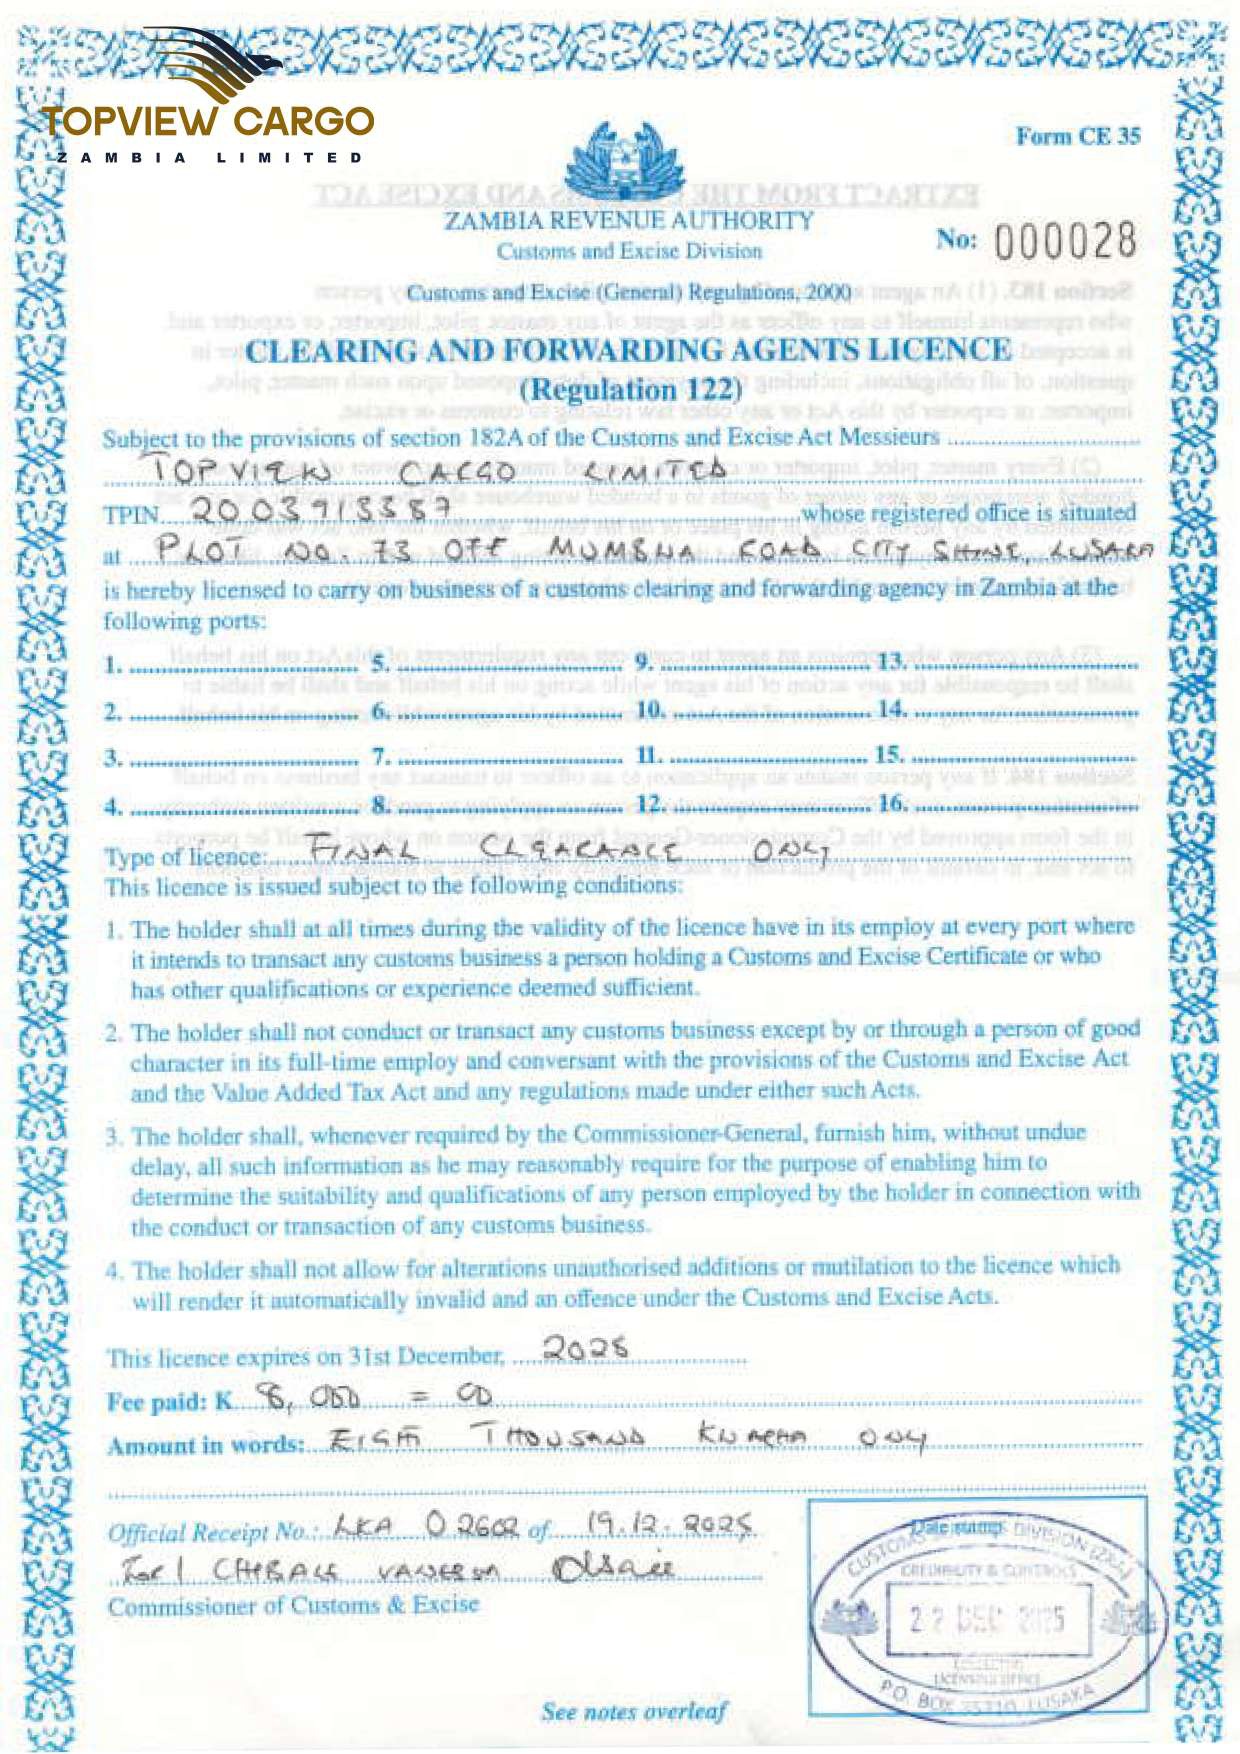 TOPVIEW CARGO
ZAMBIA LIMITED
Form CE 35
ZAMBIA REVENUE AUTHORITY
Customs and Excise Division
No: 000028
Customs and Excise (General) Regulations, 2000
CLEARING AND FORWARDING AGENTS LICENCE
(Regulation 122)
Subject to the provisions of section 182A of the Customs and Excise Act Messieurs
TOPVIEW CARGO LIMITED
TPIN 2003913387 whose registered office is situated
at PLOT NO. 73 OFF MUMBWA ROAD CITY SHINE, LUSAKA
is hereby licensed to carry on business of a customs clearing and forwarding agency in Zambia at the
following ports:
1. 5. 9. 13.
2. 6. 10. 14.
3. 7. 11. 15.
4. 8. 12. 16.
Type of licence: FINAL CLEARANCE ONLY
This licence is issued subject to the following conditions:
1. The holder shall at all times during the validity of the licence have in its employ at every port where
it intends to transact any customs business a person holding a Customs and Excise Certificate or who
has other qualifications or experience deemed sufficient.
2. The holder shall not conduct or transact any customs business except by or through a person of good
character in its full-time employ and conversant with the provisions of the Customs and Excise Act
and the Value Added Tax Act and any regulations made under either such Acts.
3. The holder shall, whenever required by the Commissioner-General, furnish him, without undue
delay, all such information as he may reasonably require for the purpose of enabling him to
determine the suitability and qualifications of any person employed by the holder in connection with
the conduct or transaction of any customs business.
4. The holder shall not allow for alterations unauthorised additions or mutilation to the licence which
will render it automatically invalid and an offence under the Customs and Excise Acts.
This licence expires on 31st December,
Fee paid: K 8,000 = 00
Amount in words: EIGHT THOUSAND KWACHA ONLY
Official Receipt No.: LKA 02602 of 19.12.2025
For/
Commissioner of Customs & Excise
Date stamp
CUSTOMS DIVISION (ZRA)
CREDIBILITY & CONTROLS
22 DEC 2025
P.O. BOX 35710, LUSAKA
See notes overleaf